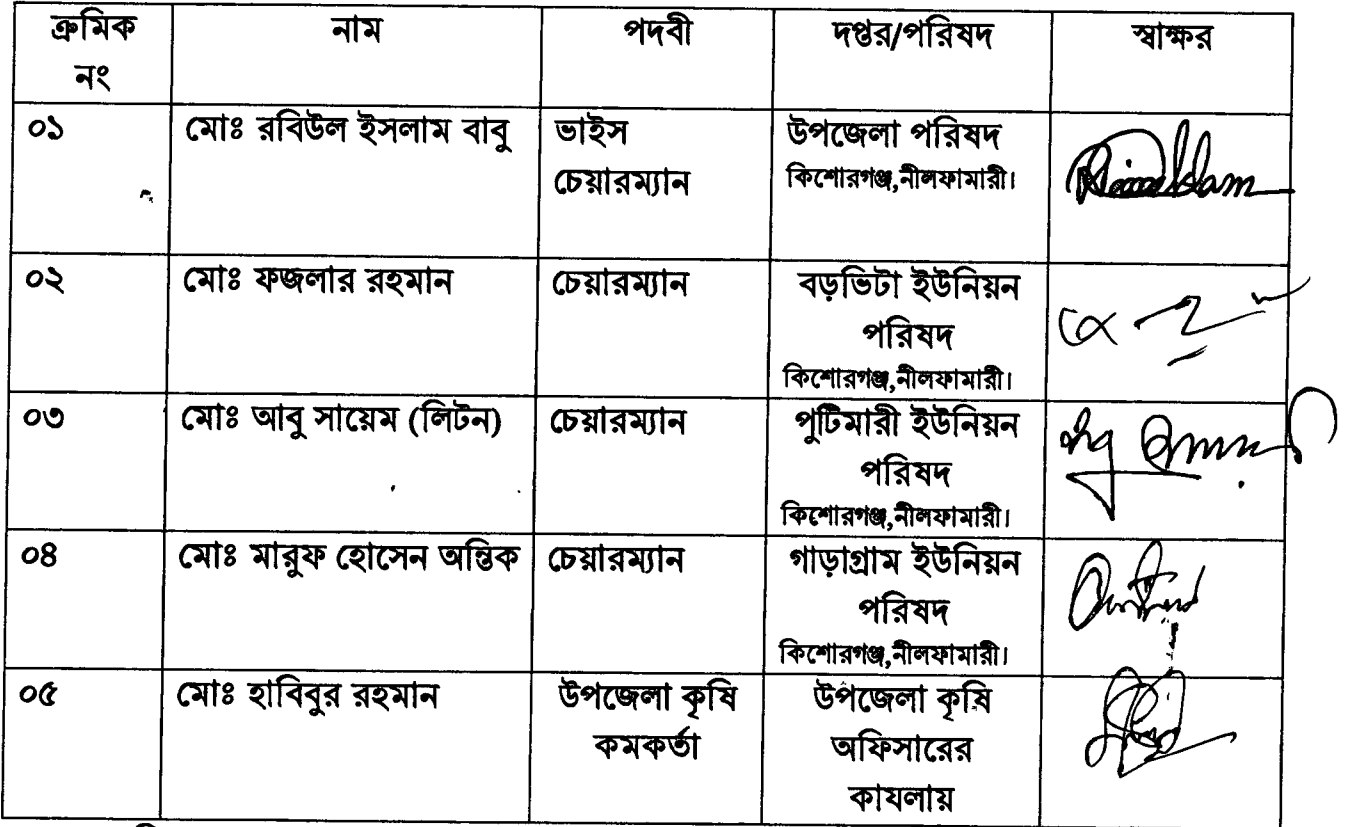 ক্রমিক নাম পদবী দপ্তর/পরিষদ স্বাক্ষর
নং
০১ মোঃ রবিউল ইসলাম বাবু ভাইস উপজেলা পরিষদ
চেয়ারম্যান কিশোরগঞ্জ,নীলফামারী।
০২ মোঃ ফজলার রহমান চেয়ারম্যান বড়ভিটা ইউনিয়ন
পরিষদ
কিশোরগঞ্জ,নীলফামারী।
০৩ মোঃ আবু সায়েম (লিটন) চেয়ারম্যান পুটিমারী ইউনিয়ন
পরিষদ
কিশোরগঞ্জ,নীলফামারী।
০৪ মোঃ মারুফ হোসেন অন্তিক চেয়ারম্যান গাড়াগ্রাম ইউনিয়ন
পরিষদ
কিশোরগঞ্জ,নীলফামারী।
০৫ মোঃ হাবিবুর রহমান উপজেলা কৃষি উপজেলা কৃষি
কমকর্তা অফিসারের
কাযলায়